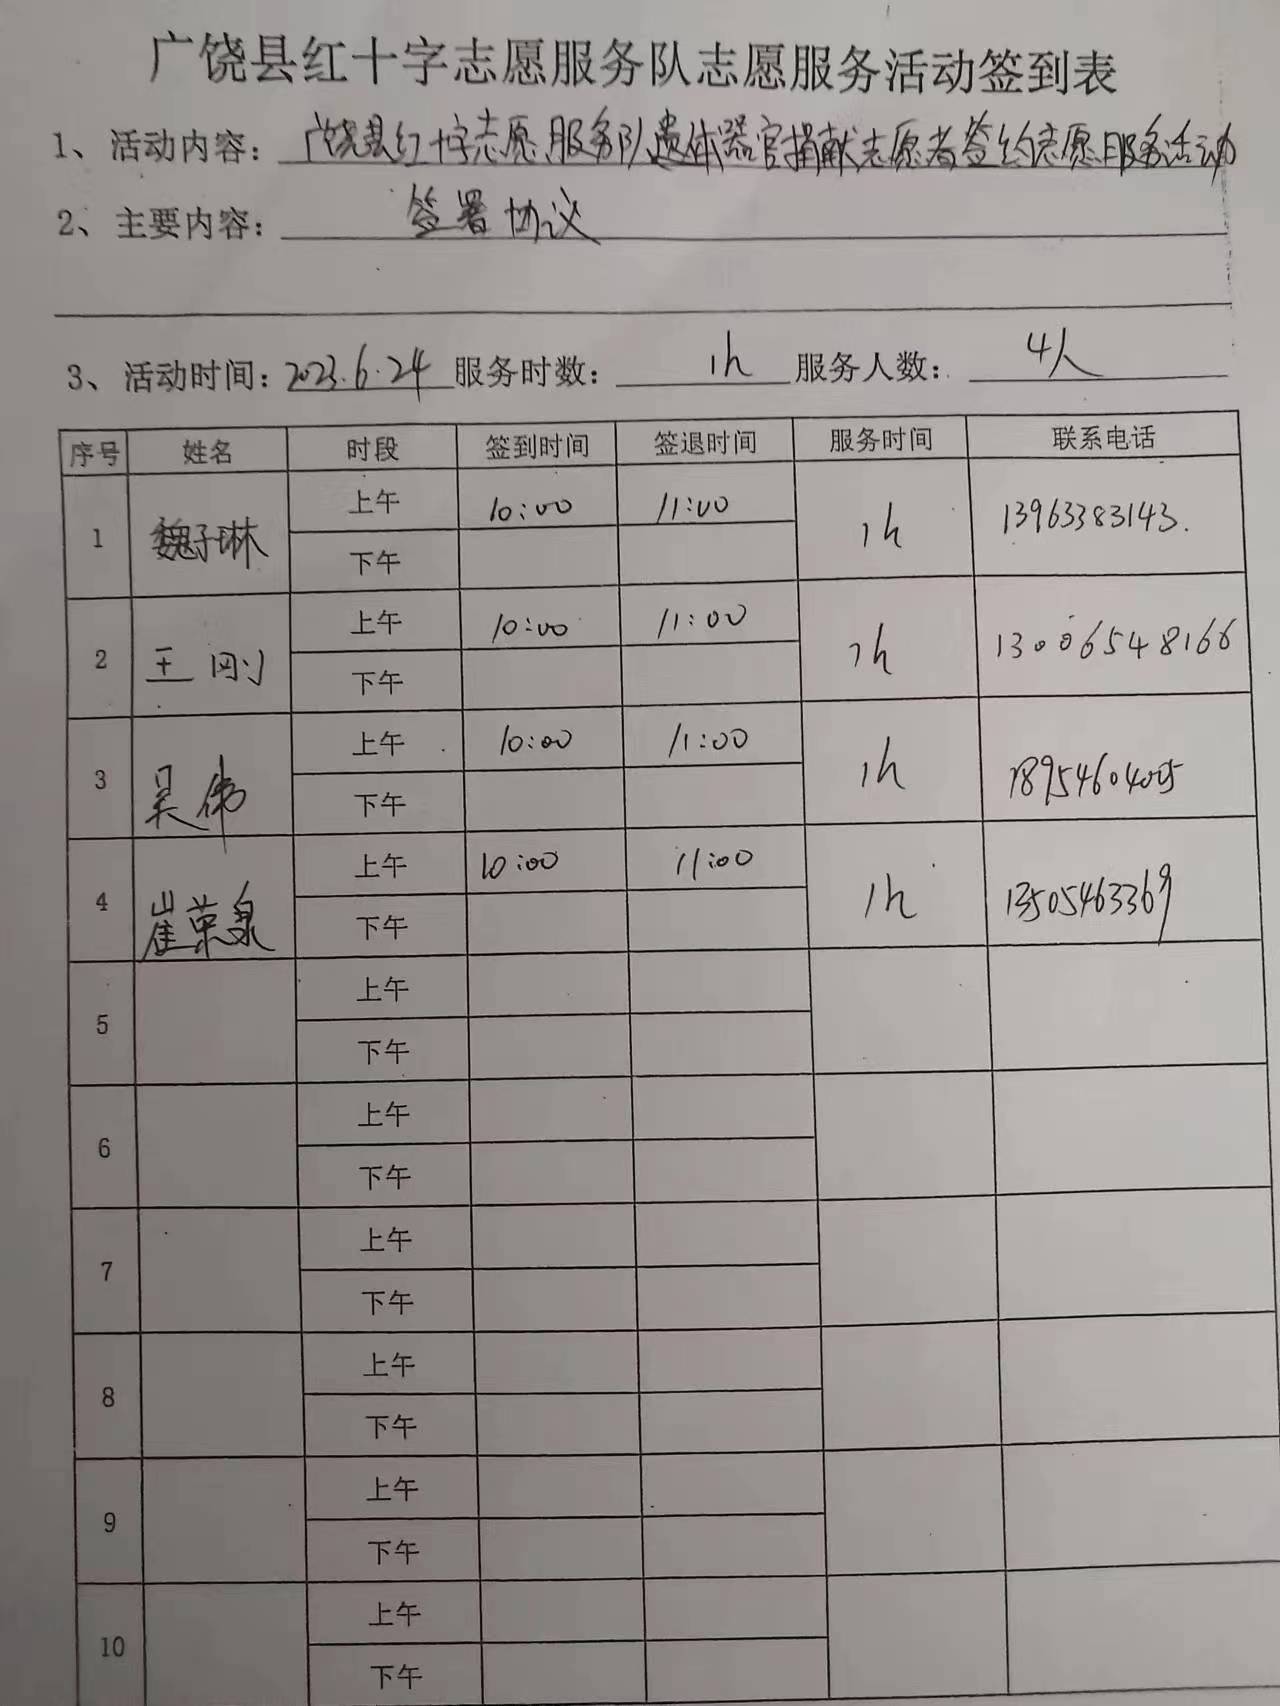 广饶县红十字志愿服务队志愿服务活动签到表
1、活动内容：广饶县红十字志愿服务队遗体器官捐献志愿者签约志愿服务活动
2、主要内容：签署协议
3、活动时间：2023.6.24 服务时数：1h 服务人数：4人
序号 姓名 时段 签到时间 签退时间 服务时间 联系电话
1 魏子琳 上午 10:00 11:00 1h 13963383143.
下午
2 王刚 上午 10:00 11:00 1h 13006548166
下午
3 吴伟 上午 10:00 11:00 1h 18954604005
下午
4 崔荣泉 上午 10:00 11:00 1h 13505463369
下午
5 上午
下午
6 上午
下午
7 上午
下午
8 上午
下午
9 上午
下午
10 上午
下午